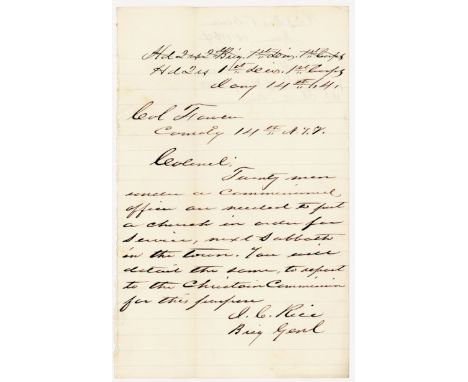 Hd Qrs 2nd Brig. 1st Div. 1st Corps
Hd Qrs 1st Div. 1st Corps
Jany 14th 64
Col Fowler
Comdg 14th N.Y.V.
Colonel:
Twenty men
under a Commissioned
officer are needed to put
a church in order for
service, next Sabbath
in the town. You will
detail the same, to report
to the Christian Commission
for this purpose
J. C. Rice
Brig Genl